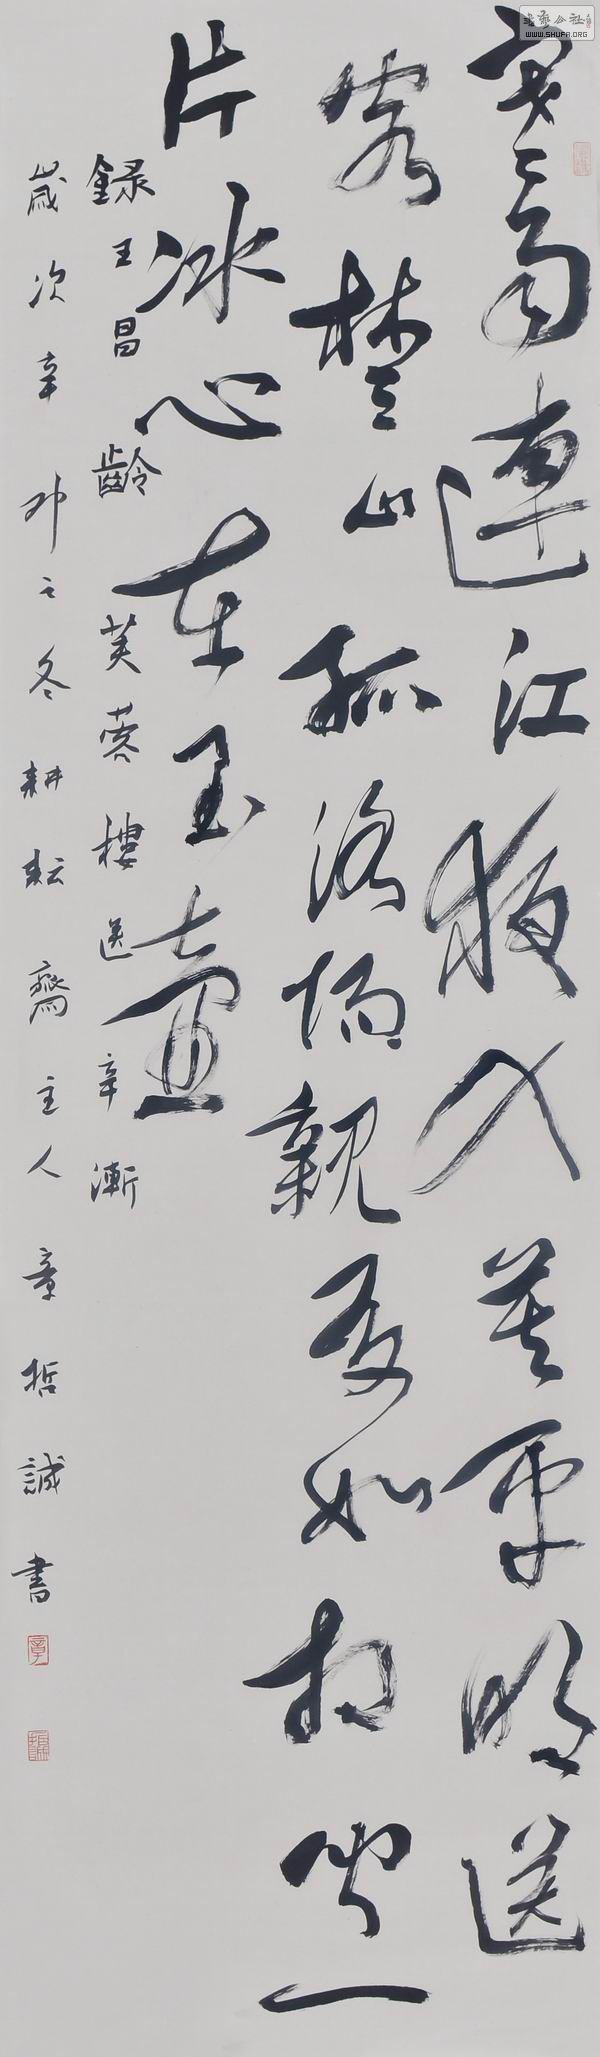 寒雨連江夜入吳平明送
客楚山孤洛陽親友如相問一
片冰心在玉壺
錄王昌齡芙蓉樓送辛漸
歲次辛卯之冬耕耘齋主人章哲誠書
WWW.SHUFA.ORG